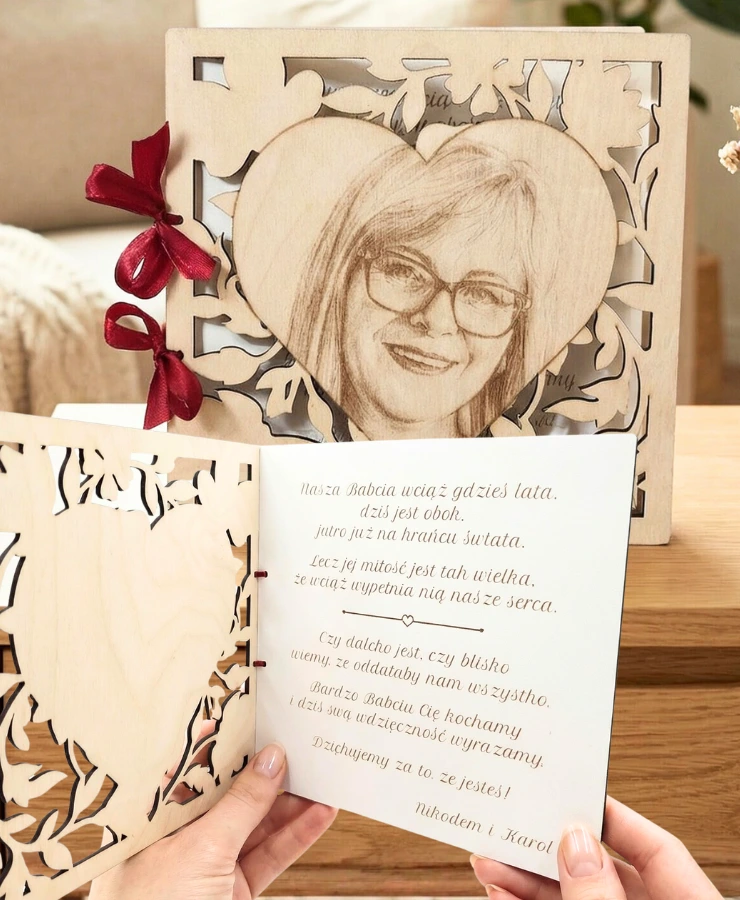 Nasza Babcia wciąż gdzieś lata,
dziś jest obok,
jutro już na krańcu świata.
Lecz jej miłość jest tak wielka,
że wciąż wypełnia nią nasze serca.
Czy daleko jest, czy blisko
wiemy, że oddałaby nam wszystko.
Bardzo Babciu Cię kochamy
i dziś swą wdzięczność wyrazamy.
Dziękujemy za to, że jesteś!
Nikodem i Karol